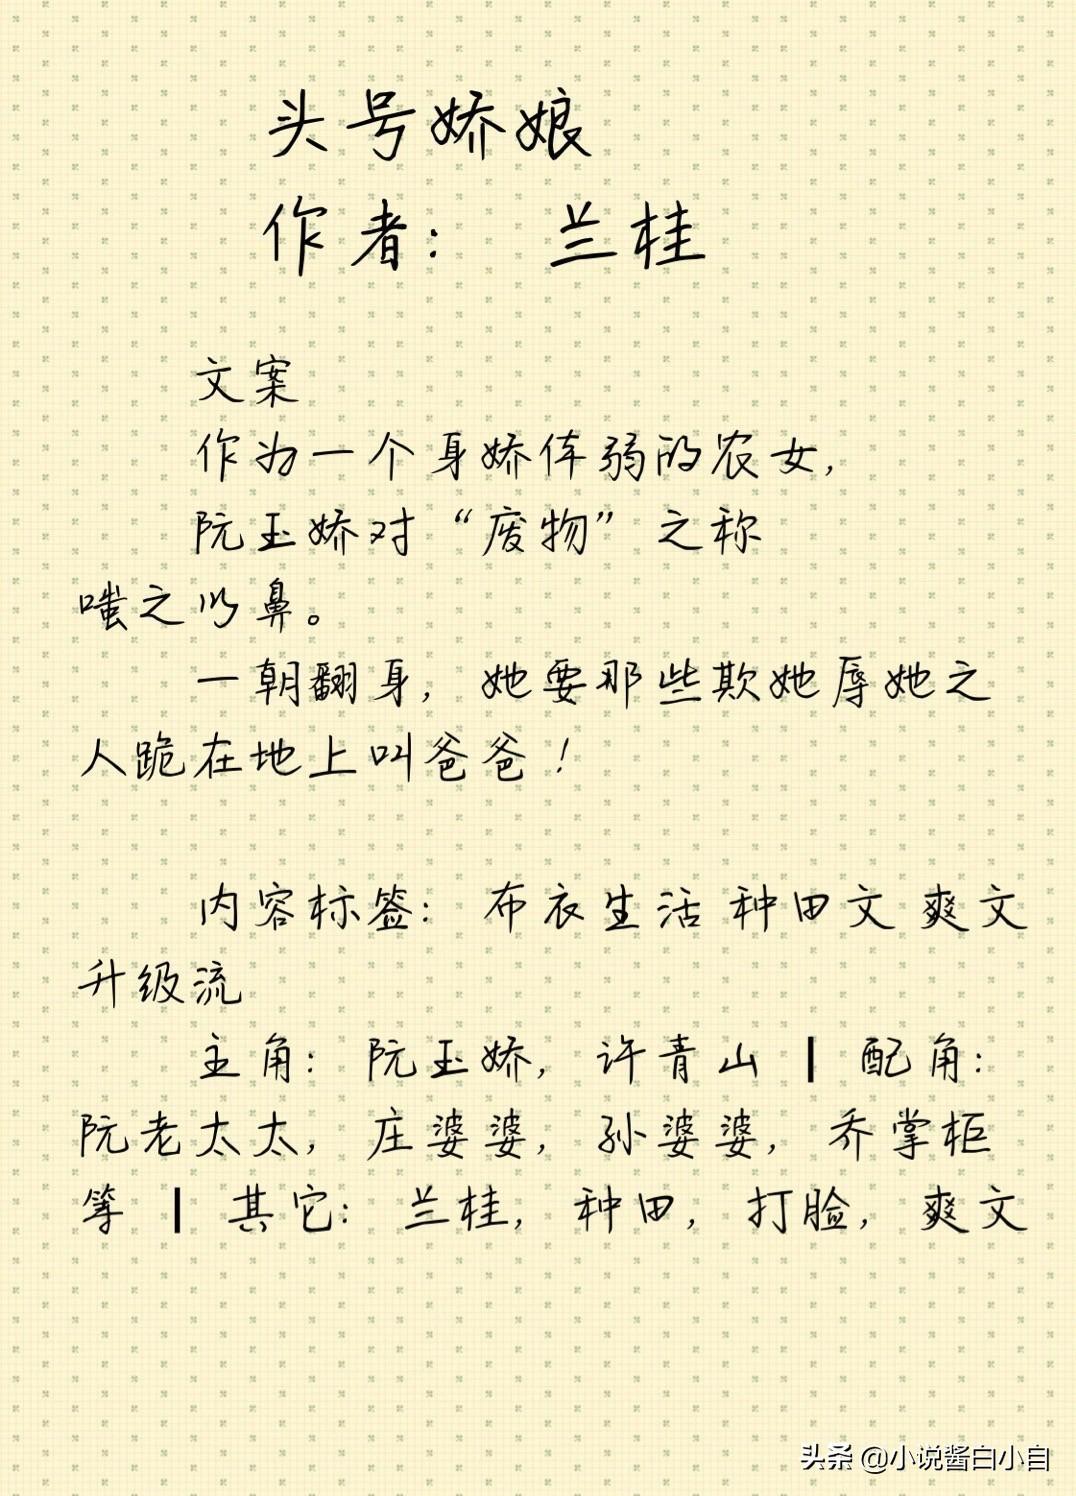 头号娇娘
作者： 兰桂
文案
作为一个身娇体弱的农女，
阮玉娇对“废物”之称
嗤之以鼻。
一朝翻身，她要那些欺她辱她之
人跪在地上叫爸爸！
内容标签：布衣生活 种田文 爽文
升级流
主角：阮玉娇，许青山 ┃ 配角：
阮老太太，庄婆婆，孙婆婆，乔掌柜
等 ┃ 其它：兰桂，种田，打脸，爽文
头条 @小说酱白小白